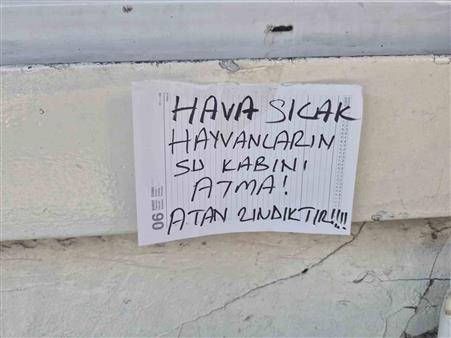 HAVA SICAK
HAYVANLARIN
SU KABINI
ATMA!
ATAN ZINDIKTIR!!!!
06